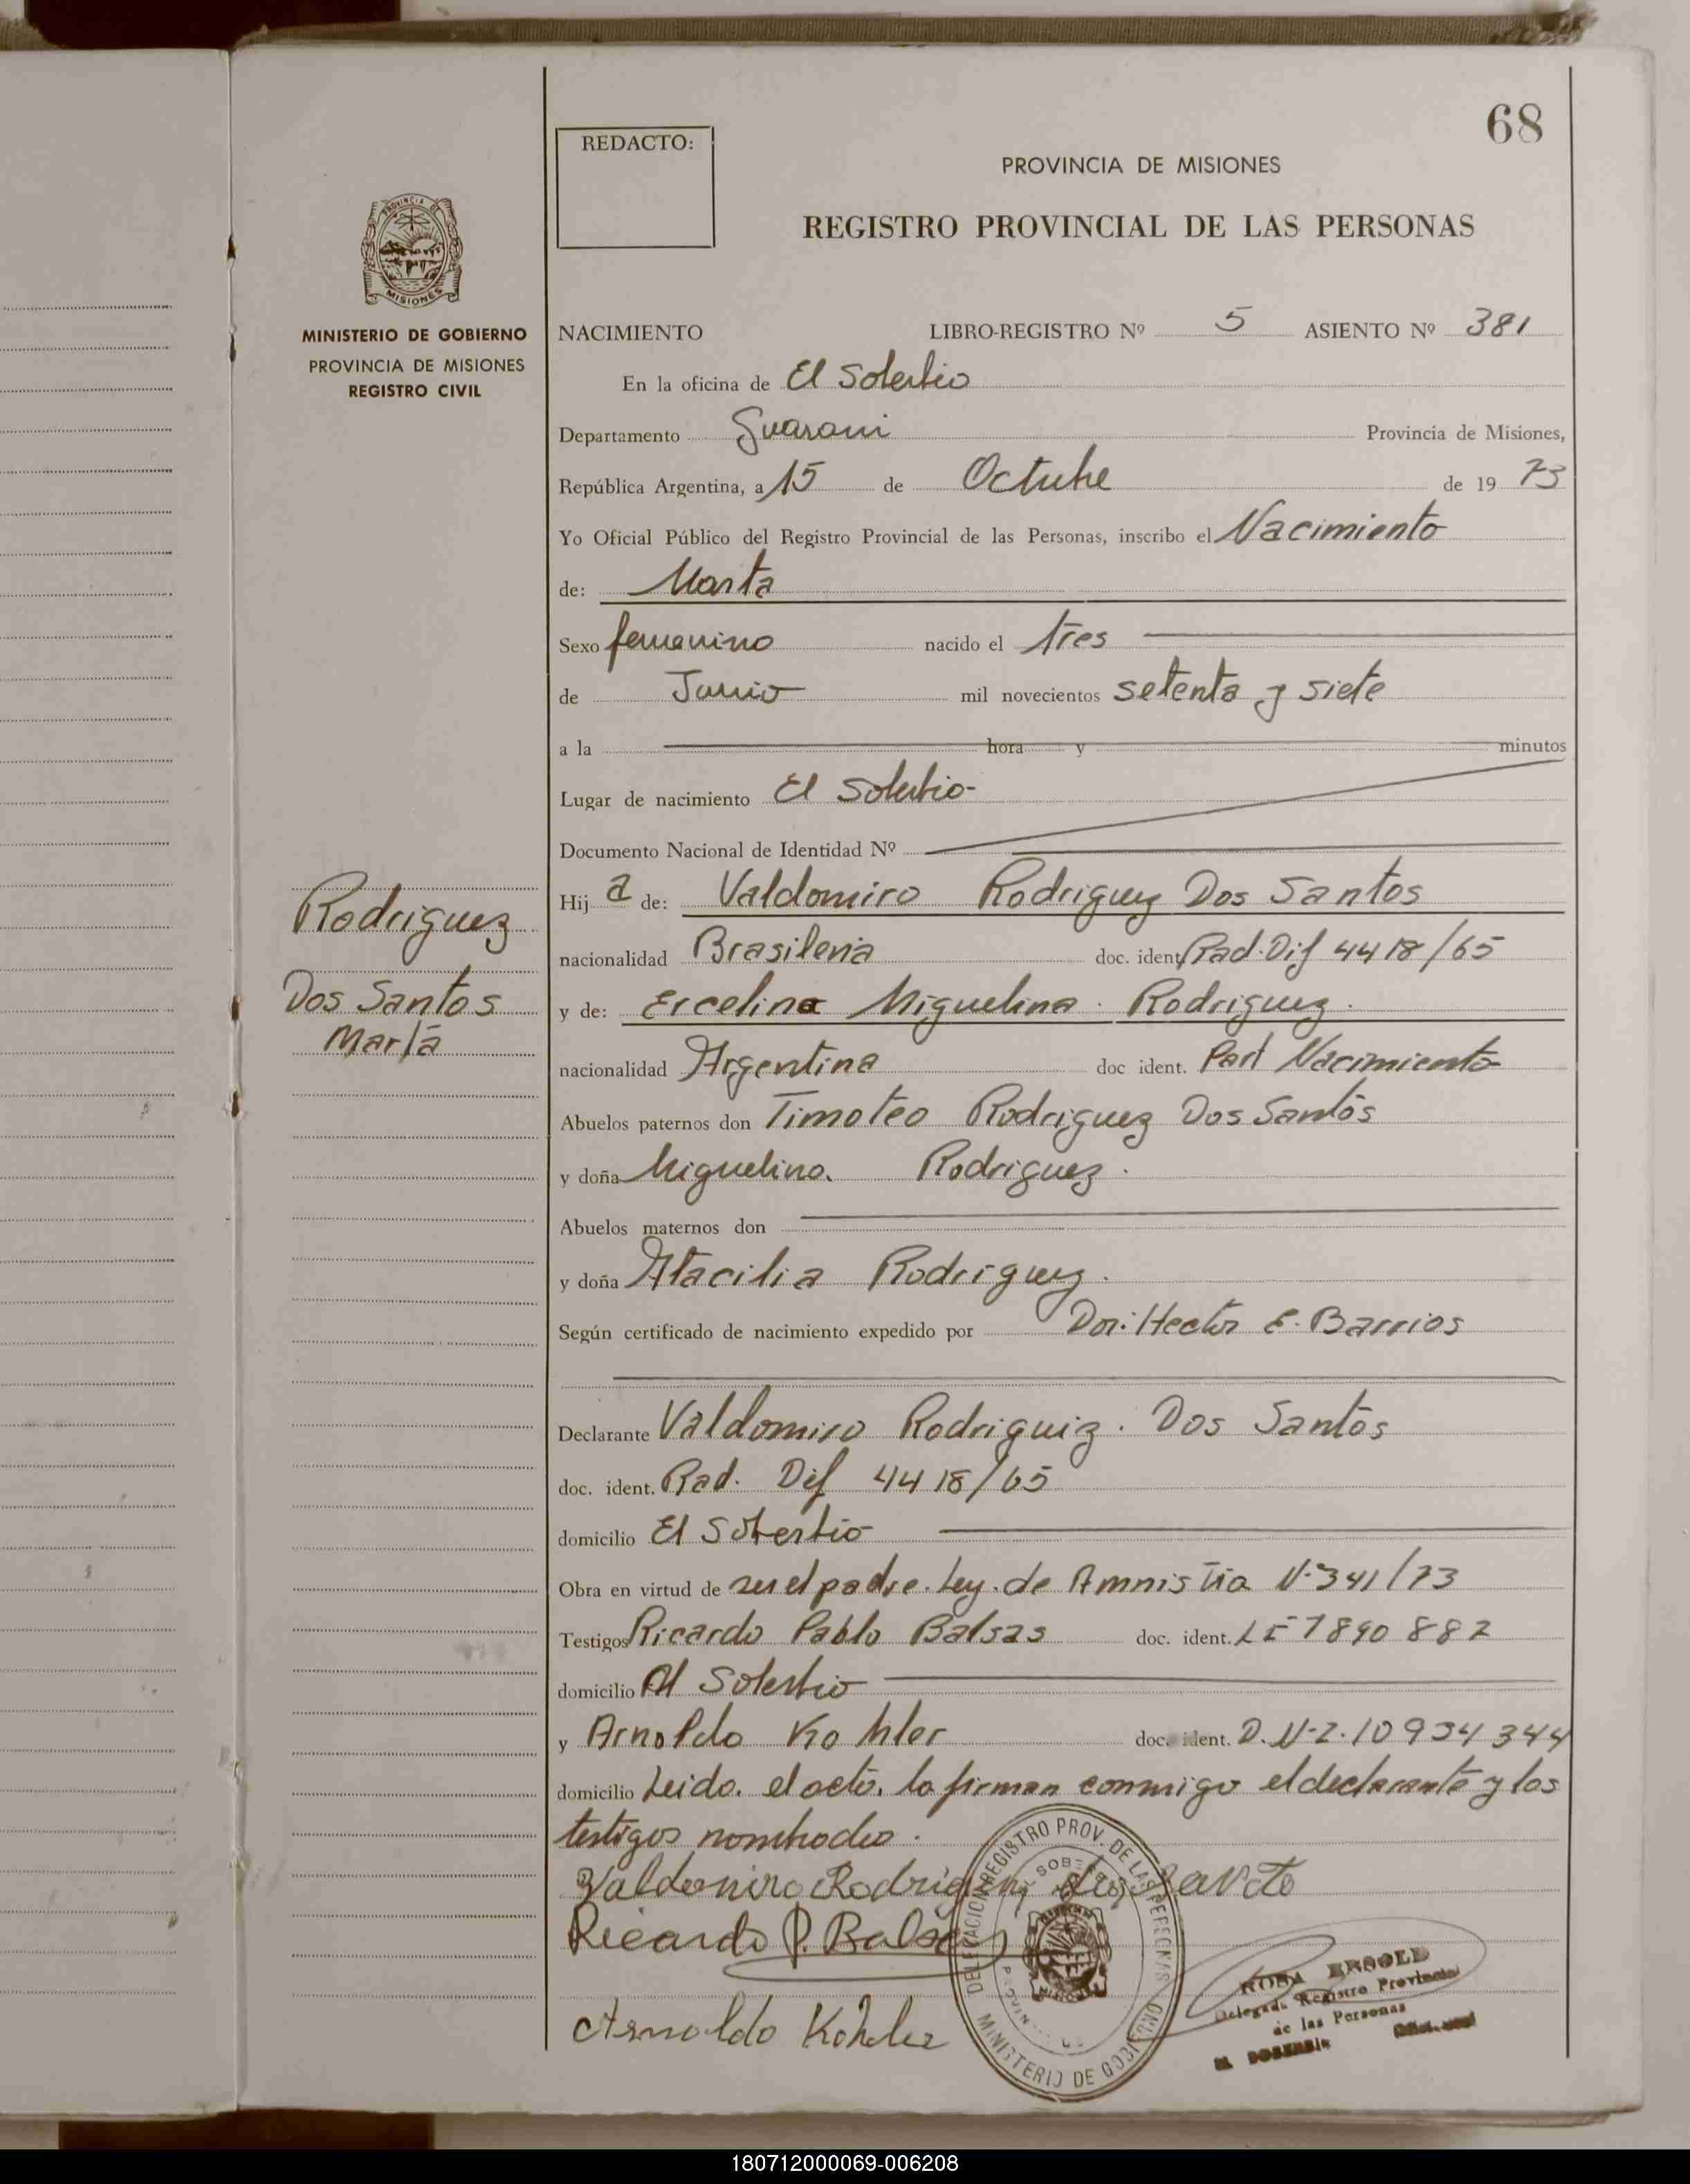 68
REDACTO:
PROVINCIA DE MISIONES
REGISTRO PROVINCIAL DE LAS PERSONAS
PROVINCIA DE
MISIONES
MINISTERIO DE GOBIERNO
PROVINCIA DE MISIONES
REGISTRO CIVIL
NACIMIENTO LIBRO-REGISTRO Nº 5 ASIENTO Nº 381
En la oficina de El Soberbio
Departamento Guarani Provincia de Misiones,
República Argentina, a 15 de Octubre de 19 73
Yo Oficial Público del Registro Provincial de las Personas, inscribo el Nacimiento
de: Marta
Sexo femenino nacido el tres
de Junio mil novecientos setenta y siete
a la hora y minutos
Lugar de nacimiento El Soberbio-
Documento Nacional de Identidad Nº
Hij a de: Valdomiro Rodriguez Dos Santos
nacionalidad Brasilena doc. ident. Rad. Dif 4418/65
y de: Ercelina Miguelina Rodriguez.
nacionalidad Argentina doc ident. Part Nacimiento
Abuelos paternos don Timoteo Rodriguez Dos Santos
y doña Miguelina. Rodriguez.
Abuelos maternos don
y doña Atacilia Rodriguez.
Según certificado de nacimiento expedido por Dor: Hector E. Barrios
Declarante Valdomiro Rodriguiz. Dos Santos
doc. ident. Rad. Dif 4418/65
domicilio El Soberbio
Obra en virtud de ser el padre. Ley. de Amnistia Nº 341/73
Testigos Ricardo Pablo Balsas doc. ident. LE 7890882
domicilio Al Soberbio
y Arnoldo Kohler doc. ident. D.N-Z.10934344
domicilio Leido. el acto. lo firman conmigo el declarante y los
testigos nombrados.
Valdomiro Rodriguez dos Santo
Ricardo P. Balsas
Arnoldo Kohler
Rodriguez
Dos Santos
Marta
DELEGACION REGISTRO PROV. DE LAS PERSONAS
EL SOBERBIO
MINISTERIO DE GOBIERNO
ROSA
Delegada Registro Provincial
de las Personas
EL SOBERBIO
180712000069-006208